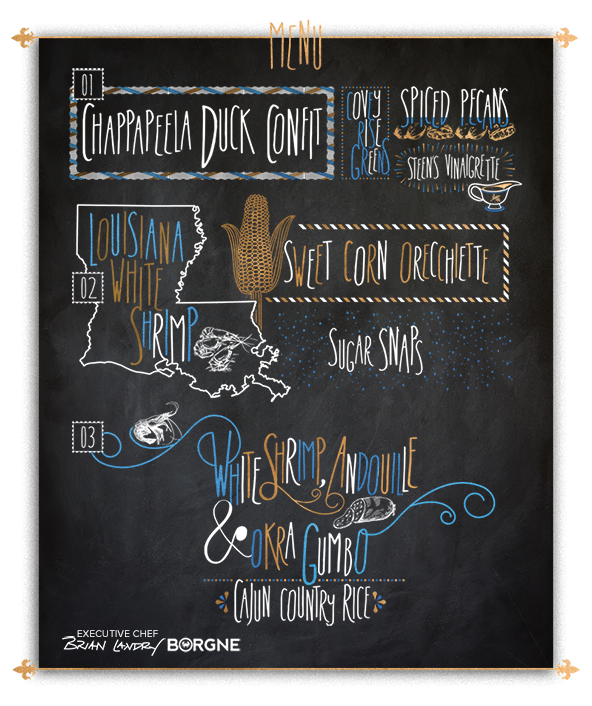 MENU
01
CHAPPAPEELA DUCK CONFIT
COVEY
RISE
GREENS
SPICED PECANS
STEEN'S VINAIGRETTE
LOUISIANA
WHITE
SHRIMP
02
SWEET CORN ORECCHIETTE
SUGAR SNAPS
03
WHITE SHRIMP, ANDOUILLE
& OKRA GUMBO
CAJUN COUNTRY RICE
EXECUTIVE CHEF
BRIAN LANDRY BORGNE